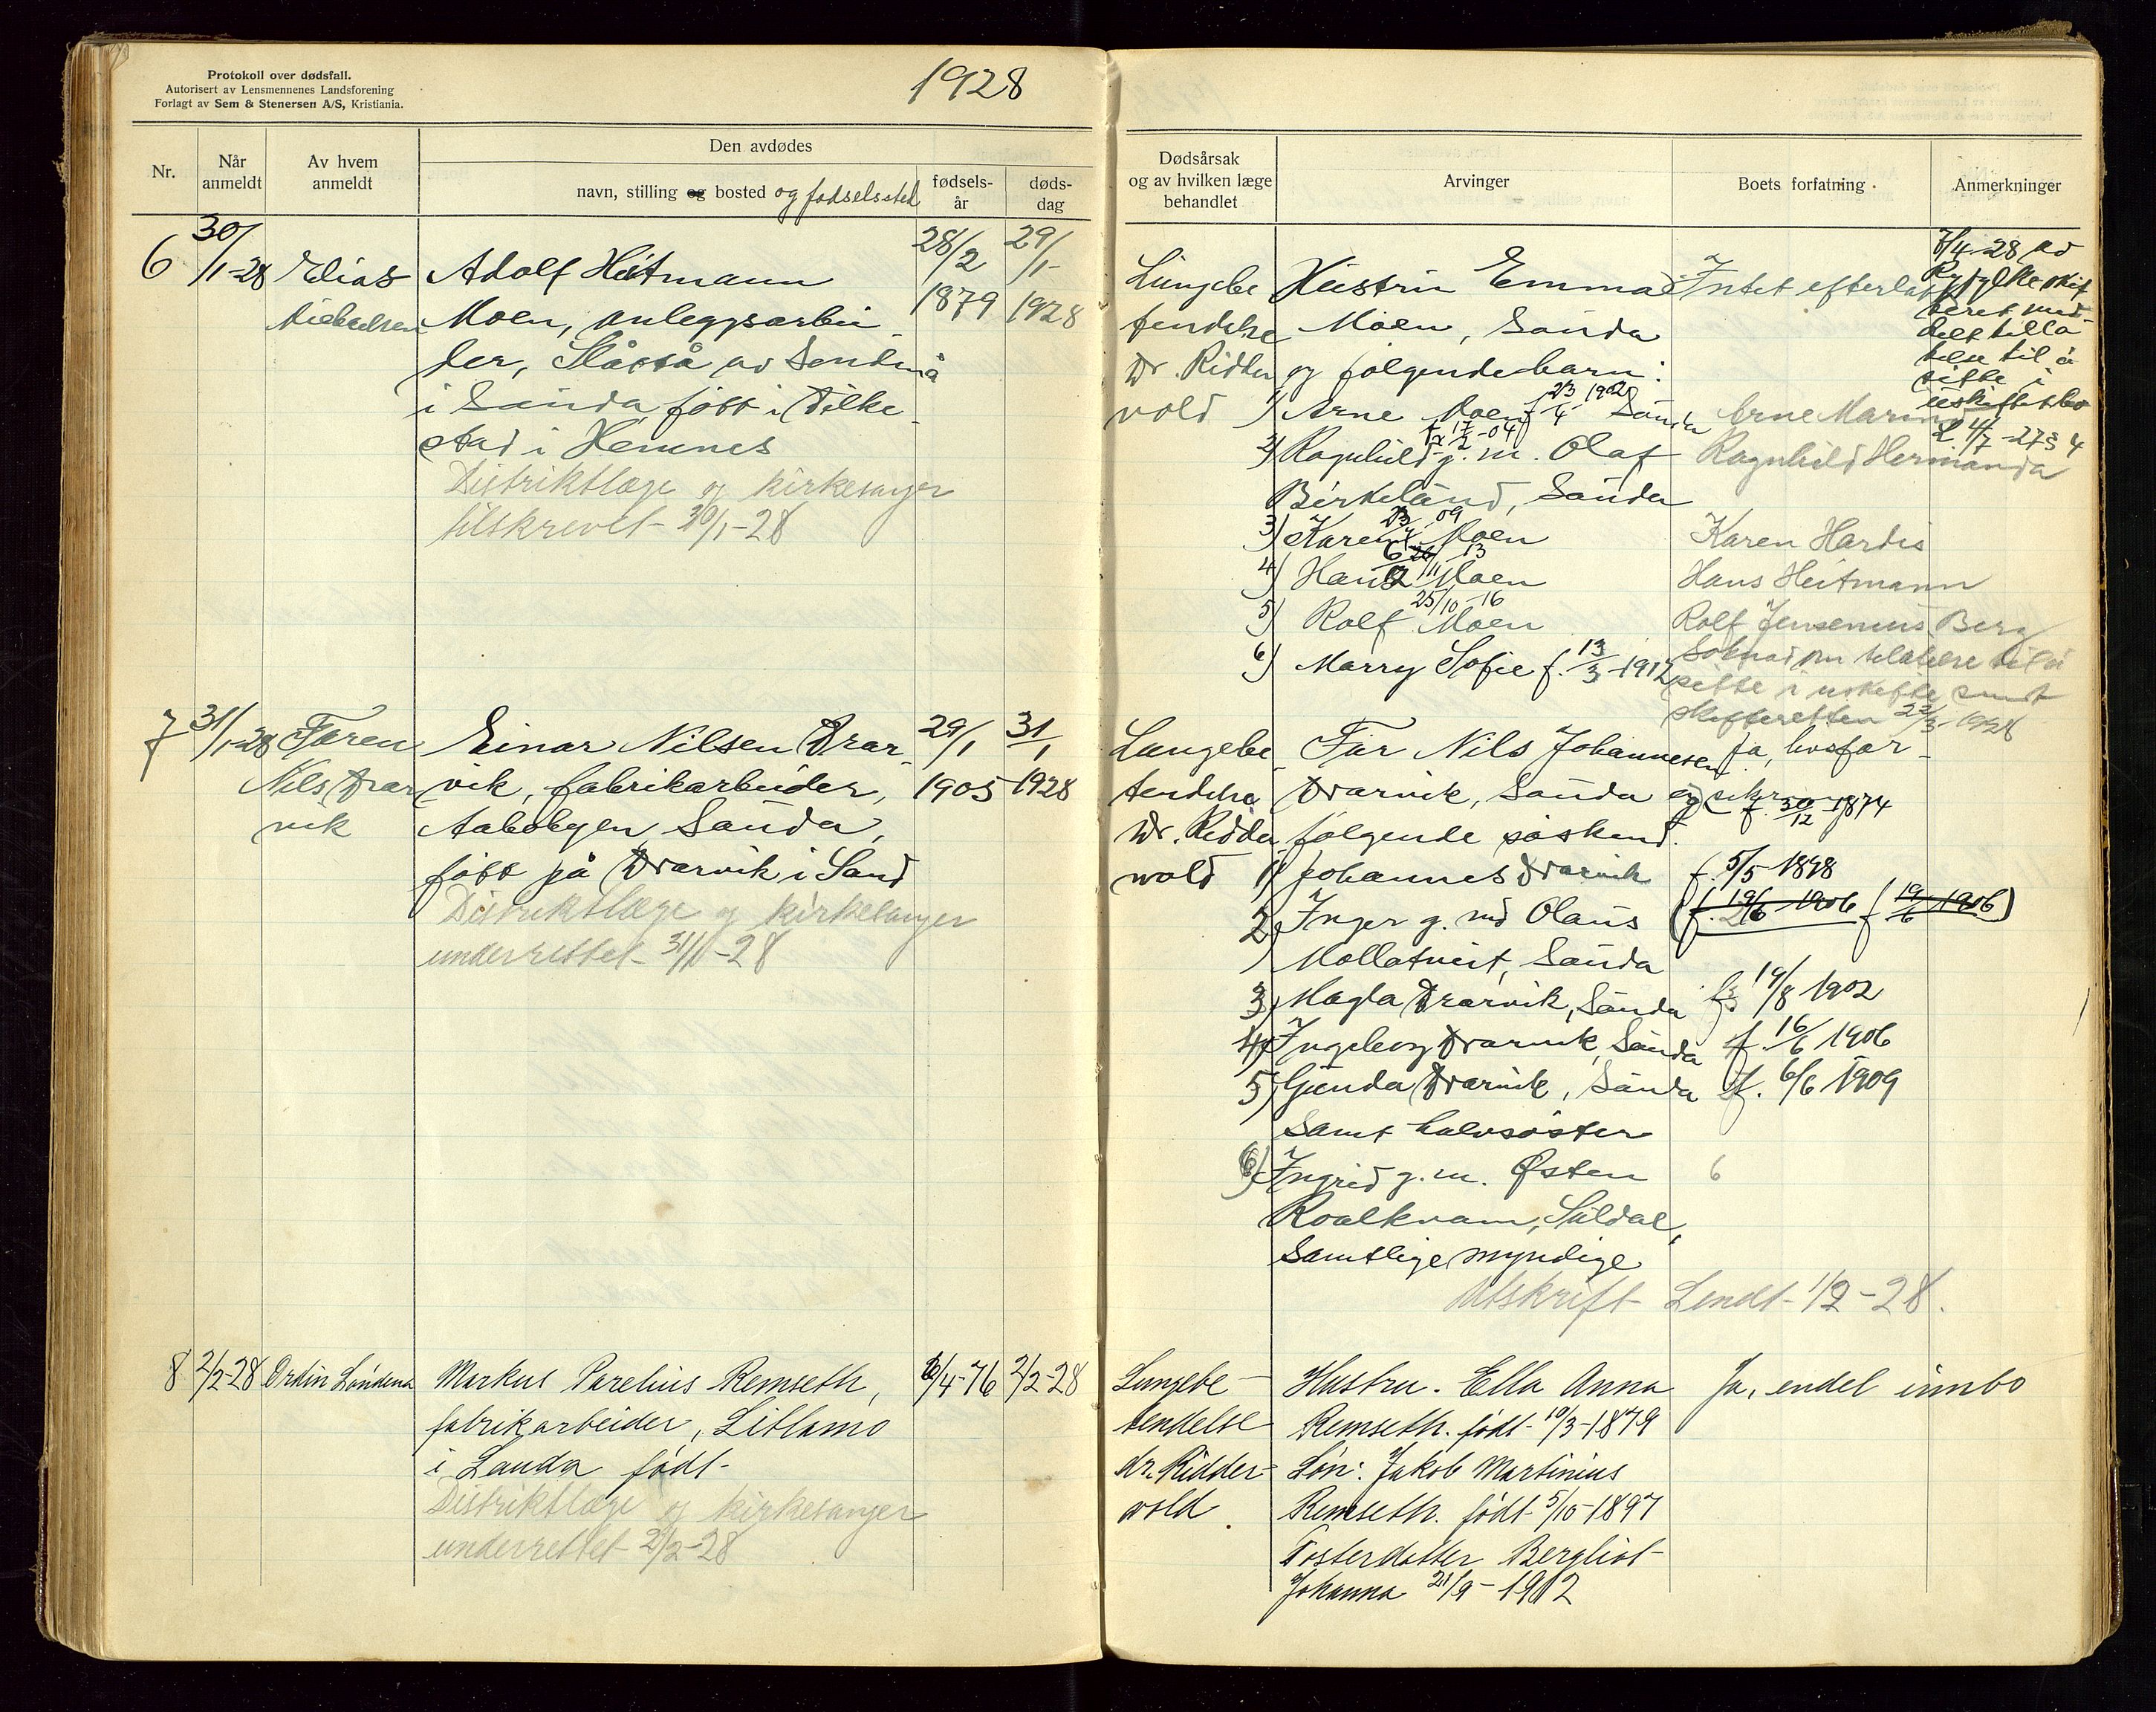 Protokoll over dødsfall.
Autorisert av Lensmennenes Landsforening
Forlagt av Sem & Stenersen A/S, Kristiania.
1928
Nr.
Når anmeldt
Av hvem anmeldt
Den avdødes
navn, stilling og bosted og fødselssted
fødsels-år
døds-dag
Dødsårsak og av hvilken læge behandlet
Arvinger
Boets forfatning
Anmerkninger
6
30/1-28
Elias
Adolf Heitmann
Moen, anleggsarbei-
der,
i Sauda født i
stad i Hemnes
Distriktlæge og kirkesanger
tilskrevet 30/1-28
28/2
1879
29/1-
1928
Lungebe
tendelse
Dr. Ridder
vold
Hustru Emma
Moen, Sauda
og følgende barn:
1) Arne Moen f 23/4 1902 Sauda
2) Ragnhild g. m. Olaf
f 17/2-04
Birkeland, Sauda
3) Karen Moen
09
4) Hans Moen
13
5) Rolf Moen
25/10-16
6) Marry Sofie f. 13/3-1912
Intet efterlatt
Arne Marin
Ragnhild Hermanda
Karen Hardis
Hans Heitmann
Rolf Jensenius Berg
Søknad om tilatelse til å
sitte i uskifte sendt
skifteretten 22/3-1928
7/4-28 av
Ryfylke skif
teret med-
delt tilla
telse til å
sitte i
uskiftet bo
L 4/7-27 § 4
7
31/1-28
Faren
Nils Drar
vik
Einar Nilsen Drar-
vik, fabrikarbeider,
Aabøbyen, Sauda,
født på Drarvik i Sand
Distriktlæge og kirkesanger
underrettet 31/1-28
29/1
1905
31/1
1928
Lungebe
tendelse
Dr. Ridder
vold
Far Nils Johannesen
Drarvik, Sauda og
f. 30/12 1874
følgende søskend.
1) Johannes Drarvik
f. 5/5 1898
2) Inger g. m. Olaus
(f. 19/6 1906 f 19/6 1906)
Mollatveit, Sauda
3) Magla Drarvik, Sauda
f. 14/8 1902
4) Ingeborg Drarvik, Sauda
f. 16/6 1906
5) Gunda Drarvik, Sauda
f. 6/6 1909
Samt halvsøster
6) Ingrid g. m. Østen
6
Roalkvam, Suldal,
Samtlige myndige
Utskrift Sendt 1/2-28.
Ja, livsfor-
sikring
8
2/2-28
Ordin Løndena
Markus Parelius Remseth,
fabrikarbeider, Litlamo
i Sauda født-
Distriktlæge og kirkesanger
underrettet 2/2-28
/4-76
2/2-28
Lungebe-
tendelse
dr. Ridder-
vold.
Hustru. Ella Anna
Remseth. født 10/3-1879
Søn: Jakob Martinius
Remseth. født 5/10-1897
Fosterdatter Bergliot
Johanna 21/9-1912
Ja, endel innbo